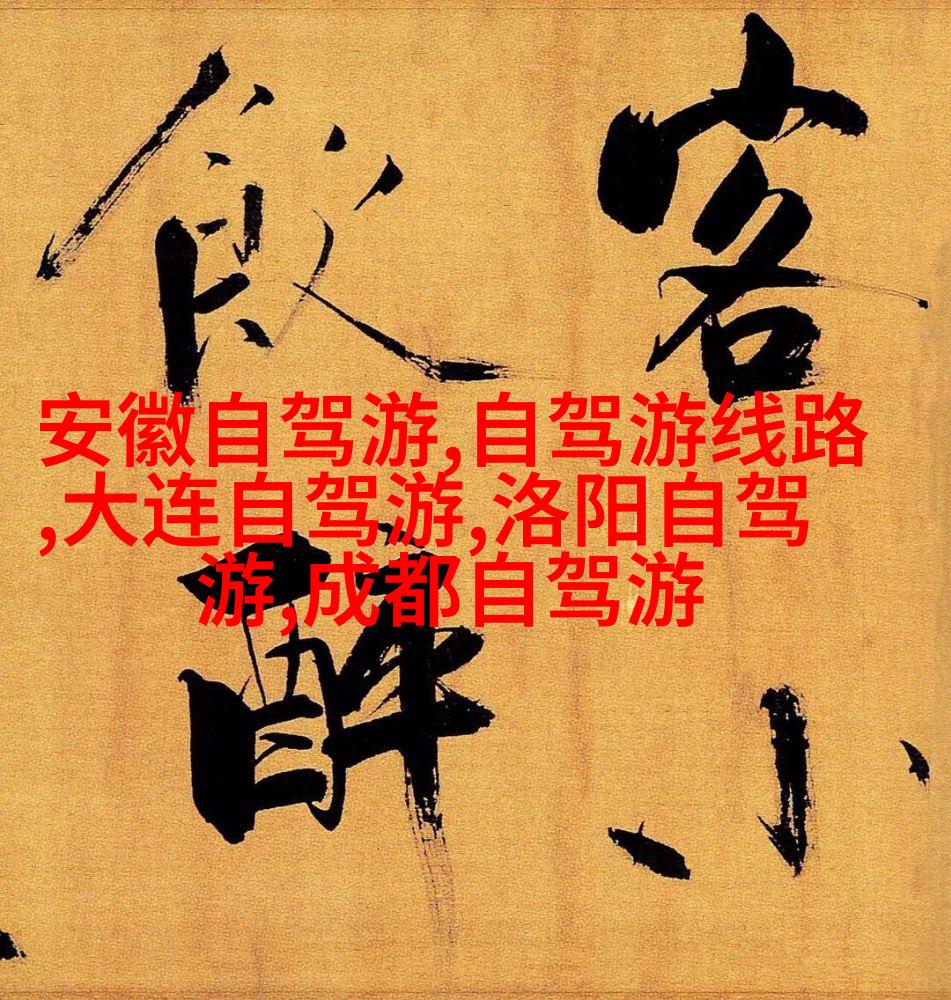 客小
飲醉
安徽自驾游,自驾游线路
,大连自驾游,洛阳自驾
游,成都自驾游